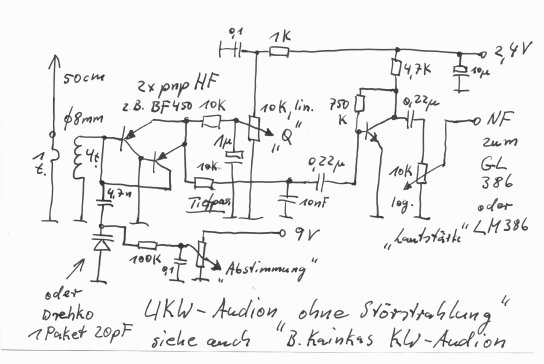 0,1
1K
2,4V
50cm
2x pnp HF
z.B. BF450
10K
10K, lin.
"Q"
4,7K
10µ
750
K
0,22µ
NF
zum
GL
386
oder
LM386
φ8mm
1µ
1
t.
4t.
10K
0,22µ
10K
log.
4,7n
Tiefpass
10nF
"Lautstärke"
9V
100K
0,1
"Abstimmung"
oder
Drehko
1 Paket 20pF
"KW-Audion ohne Störstrahlung"
siehe auch "B. Kainkas KW-Audion